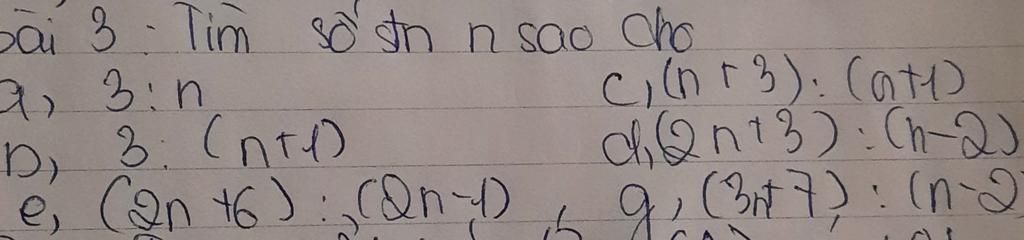 Bài 3: Tìm số stn n sao cho
a, 3:n c, (n+3): (n+1)
b, 3: (n+1) d, (2n+3): (n-2)
e, (2n+6): (2n-1), g, (3n+7): (n-2